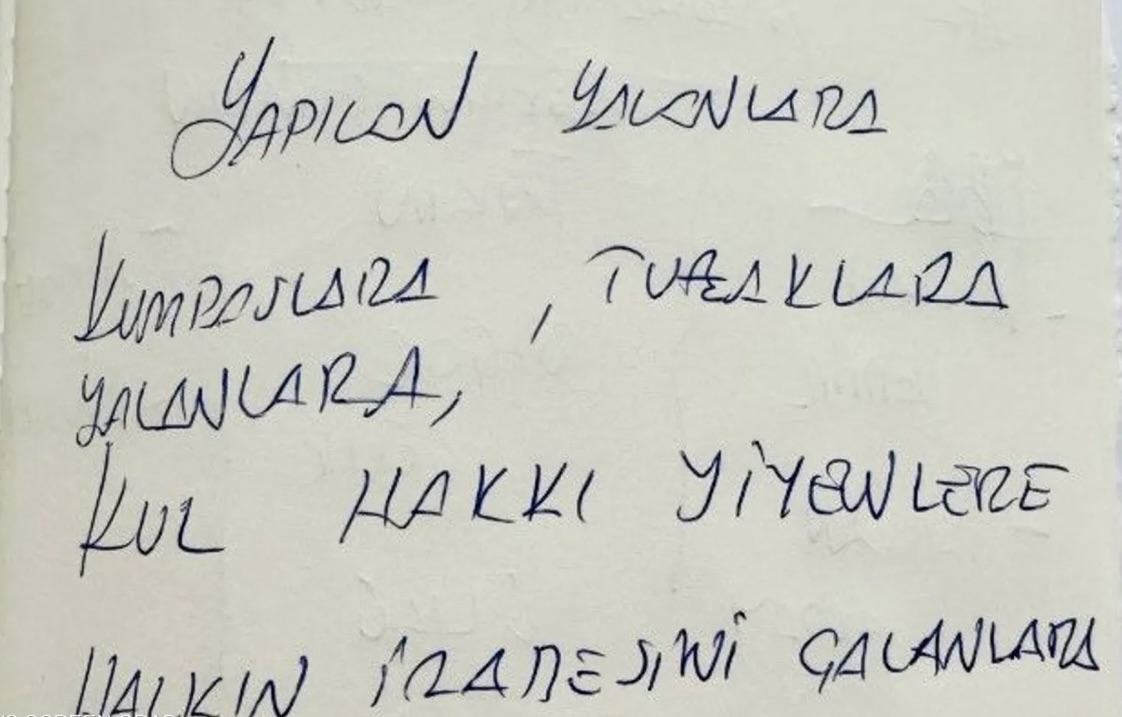 YAPILAN YALANLARA
KUMPASLARA, TUZAKLARA
YALANLARA,
KUL HAKKI YİYENLERE
HALKIN İRADESİNİ ÇALANLARA